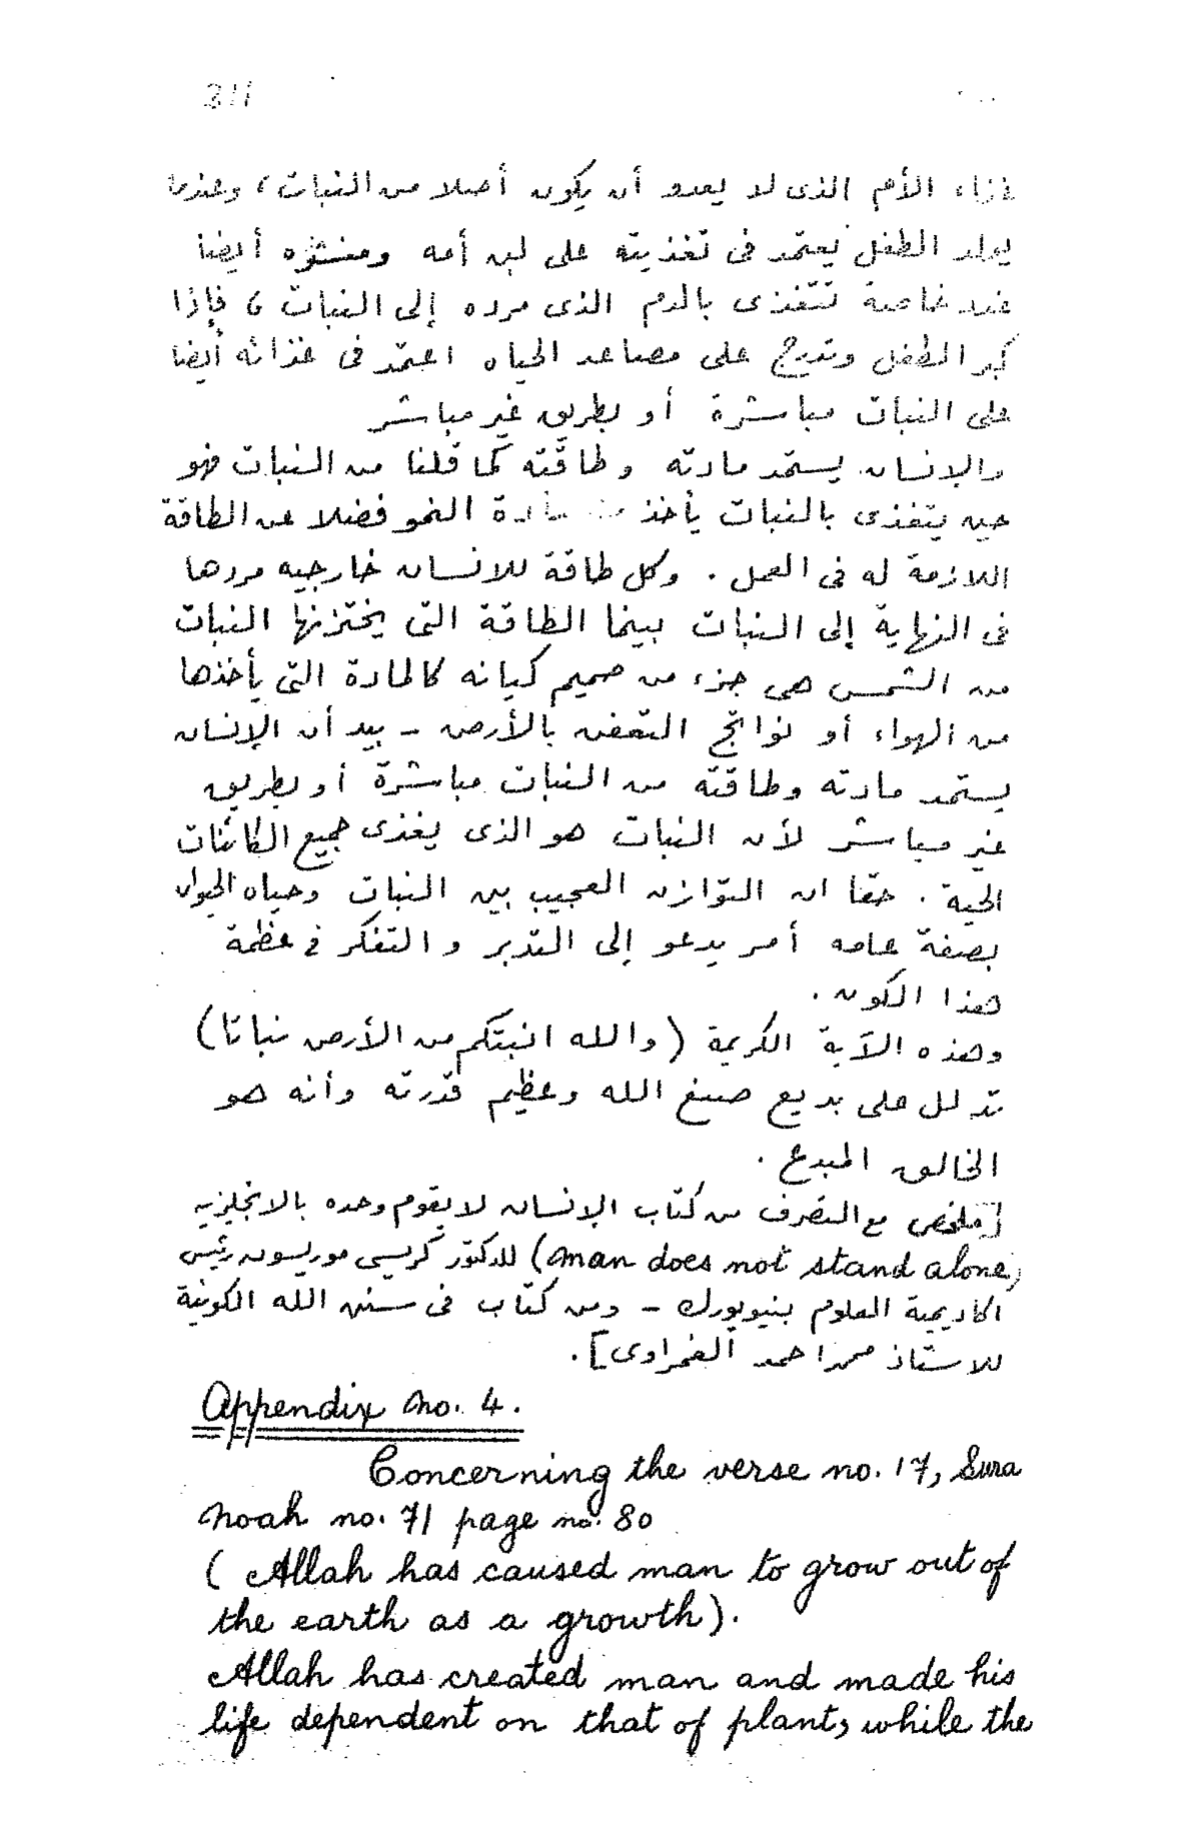 311
غذاء الأم الذى لا يعدو أن يكون أصلا من النبات ، وعندما
يولد الطفل يعتمد فى تغذيته على لبن أمه ومنشؤه أيضا
غدد خاصة تتغذى بالدم الذى مرده إلى النبات ، فإذا
كبر الطفل وتدرج على مصاعد الحياه اعتمد فى غذائه أيضا
على النبات مباشرة أو بطريق غير مباشر
والإنسان يستمد مادته وطاقته كما قلنا من النبات فهو
حين يتغذى بالنبات يأخذ منه مادة النمو فضلا عن الطاقة
اللازمة له فى العمل . وكل طاقة للانسان خارجيه مردها
فى النهاية إلى النبات بينما الطاقة التى يختزنها النبات
من الشمس هى جزء من صميم كيانه كالمادة التى يأخذها
من الهواء أو نواتج التعفن بالأرض - بيد أن الإنسان
يستمد مادته وطاقته من النبات مباشرة أو بطريق
غير مباشر لأن النبات هو الذى يغذى جميع الكائنات
الحية . حقا ان التوازن العجيب بين النبات وحياه الحيوان
بصفة عامه أمر يدعو إلى التدبر والتفكر فى عظمة
هذا الكون .
وهذه الآية الكريمة (والله انبتكم من الأرض نباتا)
تدلل على بديع صنع الله وعظيم قدرته وأنه هو
الخالق المبدع .
[ملخص مع التصرف من كتاب الإنسان لا يقوم وحده بالانجليزيه
(man does not stand alone) للدكتور كريسى موريسون رئيس
اكاديمية العلوم بنيويورك - ومن كتاب فى سنن الله الكونية
للاستاذ محمد احمد الغمراوى].
Appendix no. 4.
Concerning the verse no. 17, Sura
Noah no. 71 page no. 80
( Allah has caused man to grow out of
the earth as a growth).
Allah has created man and made his
life dependent on that of plant, while the